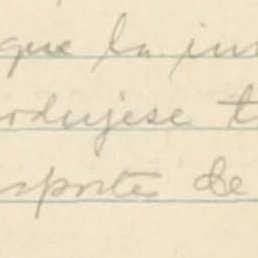 que la ins
odujese t
sporte de